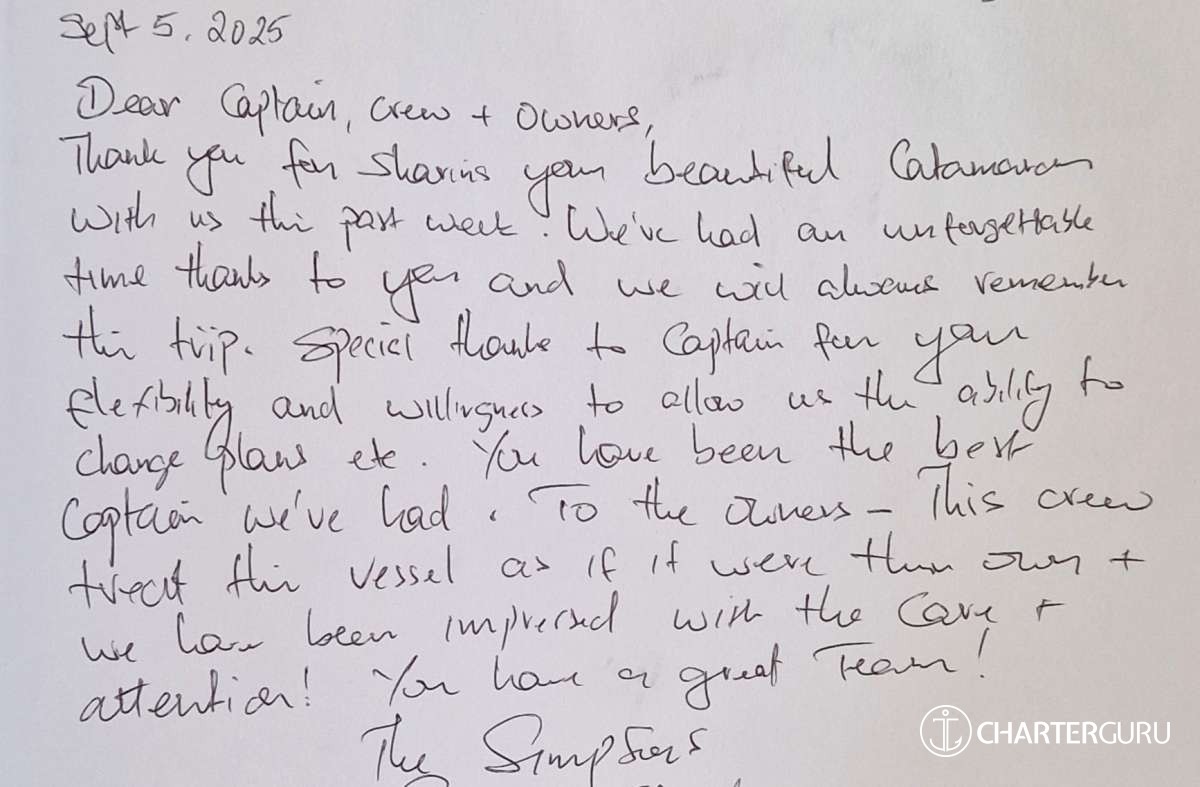 Sept 5, 2025
Dear Captain, crew + owners,
Thank you for sharing your beautiful Catamaran
with us this past week. We've had an unforgettable
time thanks to you and we will always remember
this trip. Special thanks to Captain for your
flexibility and willingness to allow us the ability to
change plans etc. You have been the best
Captain we've had. To the owners – This crew
treat this vessel as if it were their own +
we have been impressed with the care +
attention! You have a great Team!
The Simpsons
CHARTERGURU